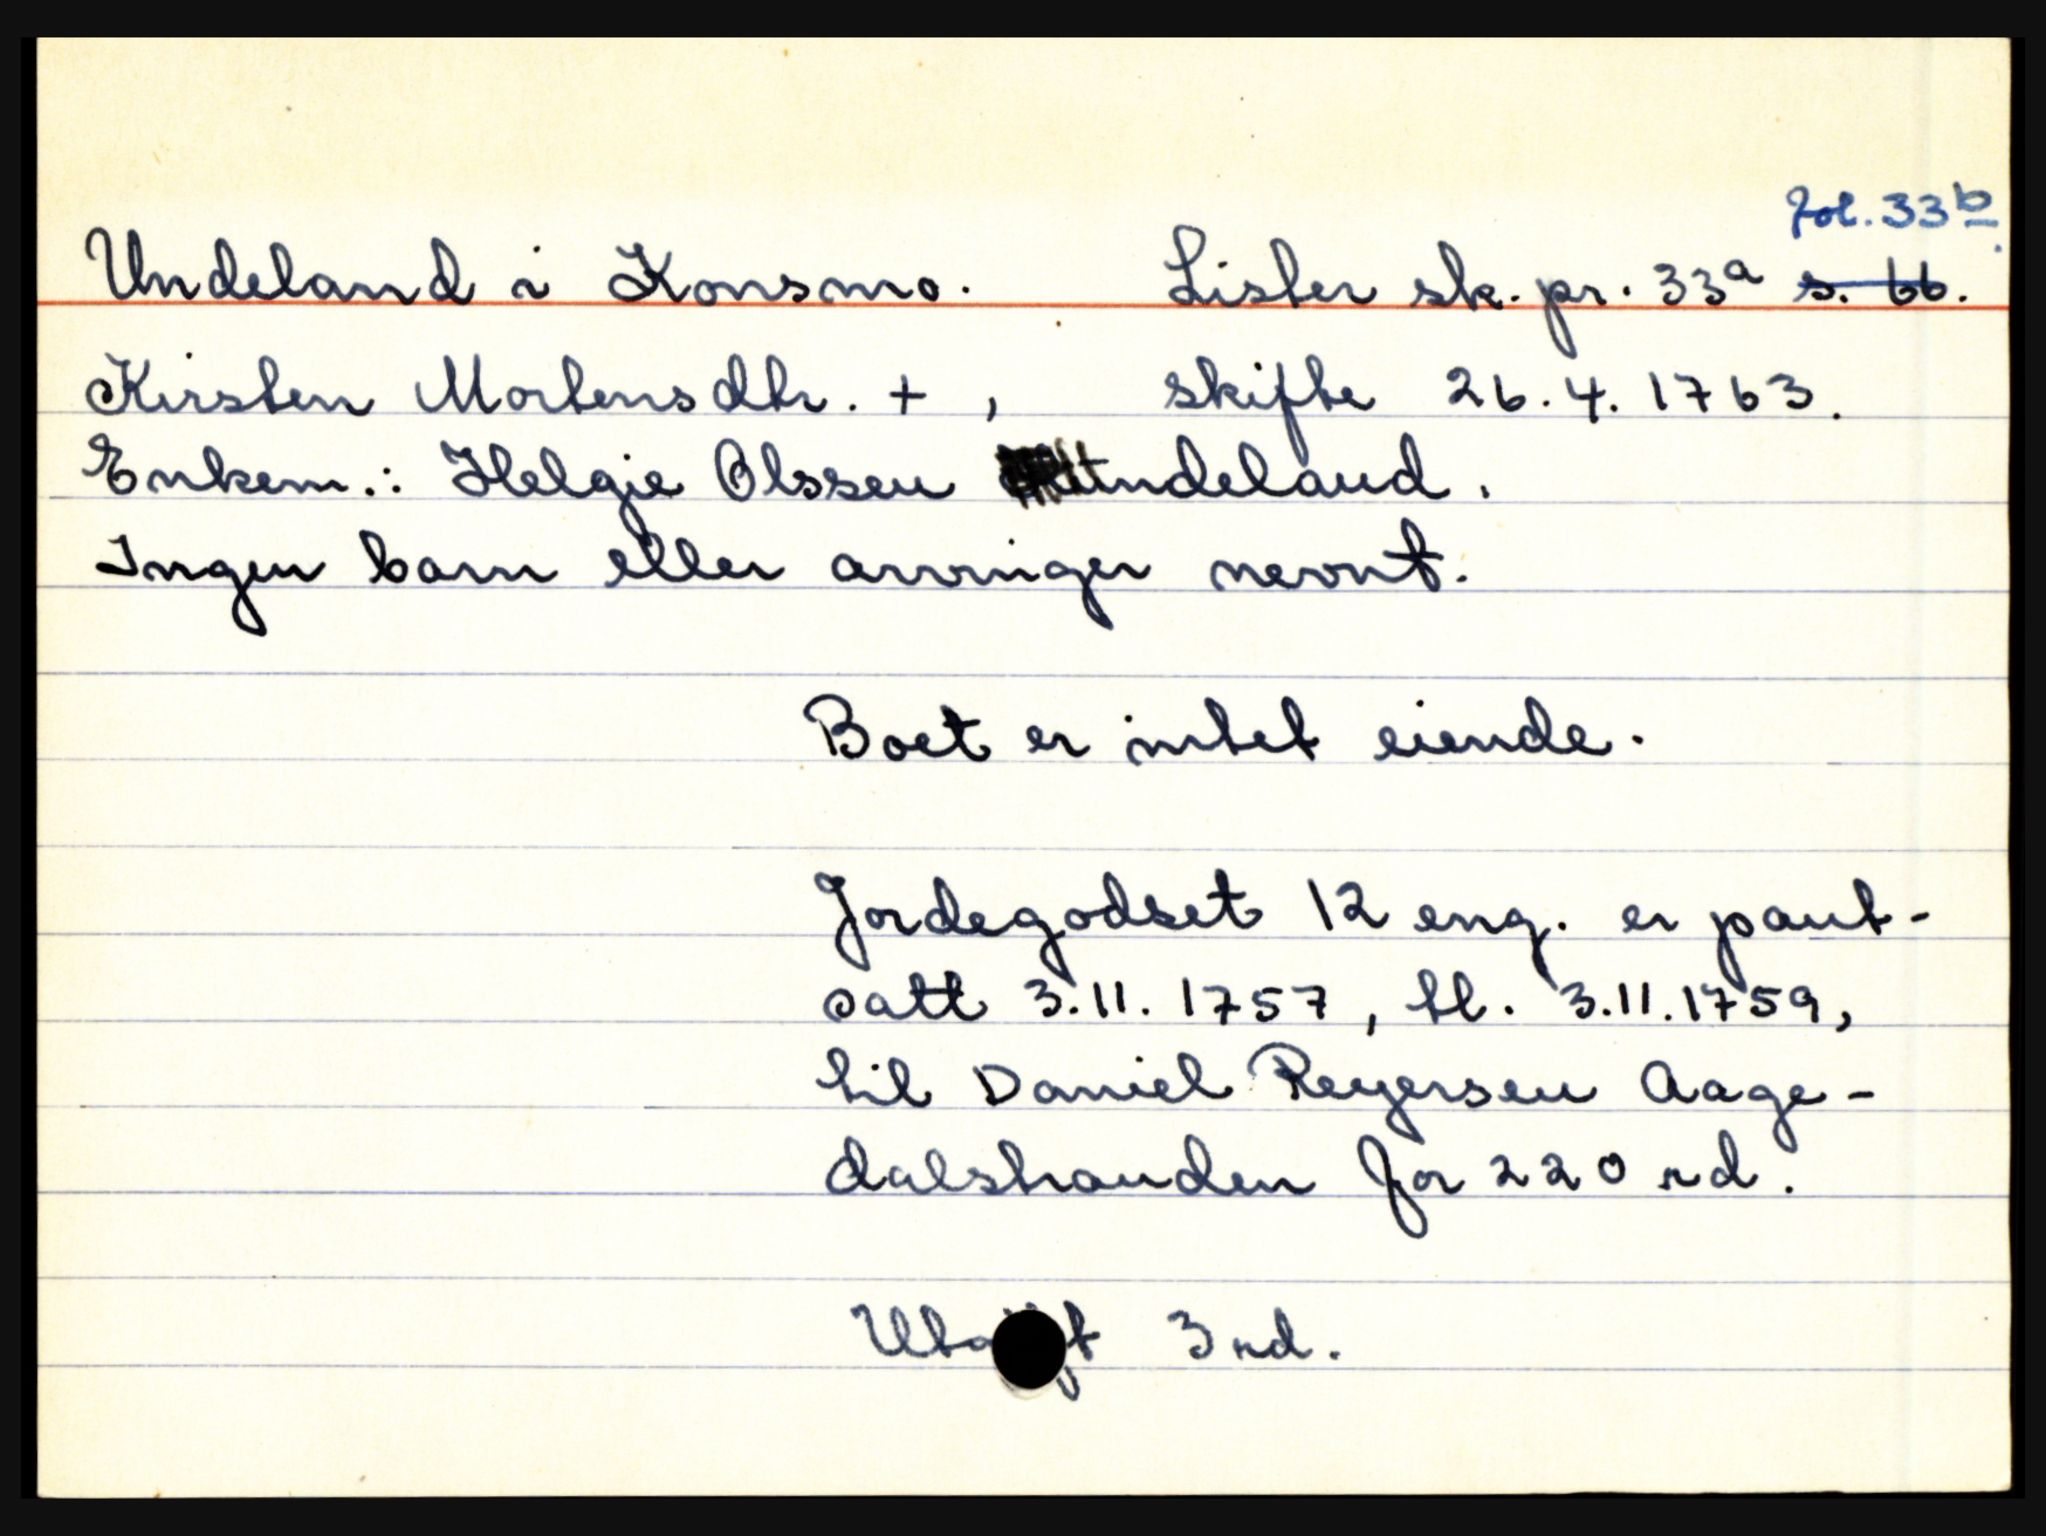 fol. 33b.
Undeland i Konsmo. Lister sk. pr. 33a s. 66.
Kirsten Mortensdtr. + , skifte 26.4.1763.
Enkem.: Helgie Olssen Undeland.
Ingen barn eller arvinger nevnt.
Boet er intet eiende.
Jordegodset 12 eng. er pant-
satt 3.11.1757, tl. 3.11.1759,
til Daniel Reyersen Aage-
dalshanden for 220 rd.
3 rd.